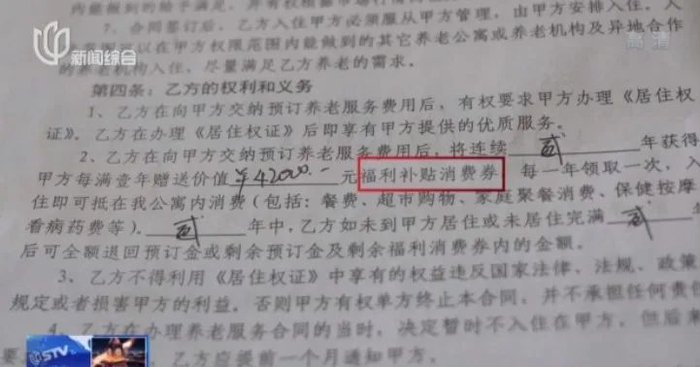 内能做到的给予满足,并有权根据市场行情
7、合同签订后,乙方入住甲方必须服从甲方管理,由甲方安排入住。入
以在甲方权限范围内能做到的其它养老公寓或养老机构及异地合作
的养老机构入住,尽量满足乙方养老的需求。
新闻综合
高清
第四条:乙方的权利和义务
1、乙方在向甲方交纳预订养老服务费用后,有权要求甲方办理《居住权
证》。乙方在办理《居住权证》后即享有甲方提供的优质服务。
2、乙方在向甲方交纳预订养老服务费用后,将连续 贰 年获得
甲方每满壹年赠送价值 ¥42000.- 元福利补贴消费券,每一年领取一次,入
住即可抵在我公寓内消费(包括:餐费、超市购物、家庭聚餐消费、保健按摩
看病药费等)。 贰 年中,乙方如未到甲方居住或未居住完满 贰
后可全额退回预订金或剩余预订金及剩余福利消费券内的金额。
3、乙方不得利用《居住权证》中享有的权益违反国家法律、法规、政策
规定或者损害甲方的利益。否则甲方有权单方终止本合同,并不承担任何责任
4、乙方在办理养老服务合同的当时,决定暂时不入住在甲方,但后来
要 乙方应提前一个月通知甲方。
STV